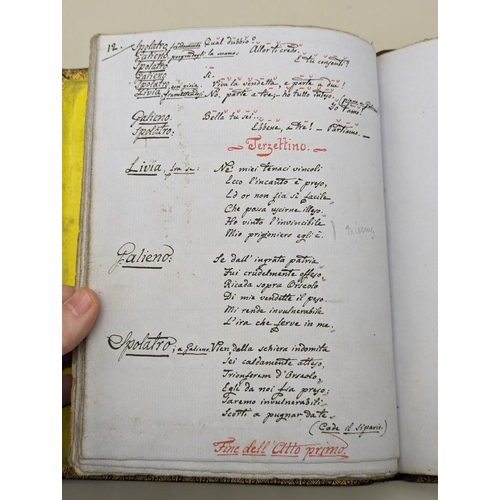 12.
Spolatro, Qual dubbio?
Galieno, porgendogli la mano: Allor ti credo.
Spolatro: E tu consenti?
Galieno: Sì.
Spolatro, con gioia: Viva la vendetta, e parte a due
Livia, No, parte a tre, ho tutto inteso.
Io t'amo!
Galieno: Bella tu sei...
Spolatro: Ebbene, a tre! – Partiamo.
Terzettino.
Livia, fra se: Ne' miei tenaci vincoli
Ecco l'incanto è preso,
Ed or non fia sì facile
Che possa uscirne illeso.
Ho vinto l'invincibile
Mio prigioniero egli è.
missing
Galieno: Se dall'ingrata patria
Fui crudelmente offeso,
Ricada sopra Orseolo
Di mie vendette il peso.
Mi rende invulnerabile
L'ira che ferve in me.
Spolatro; a Galieno, Vien della schiera indomita
Sei caldamente atteso,
Trionferem d'Orseolo,
Egli da noi fia preso;
Saremo invulnerabili
Scorti a pugnar da te.
(Cade il Sipario.)
Fine dell'Atto primo.